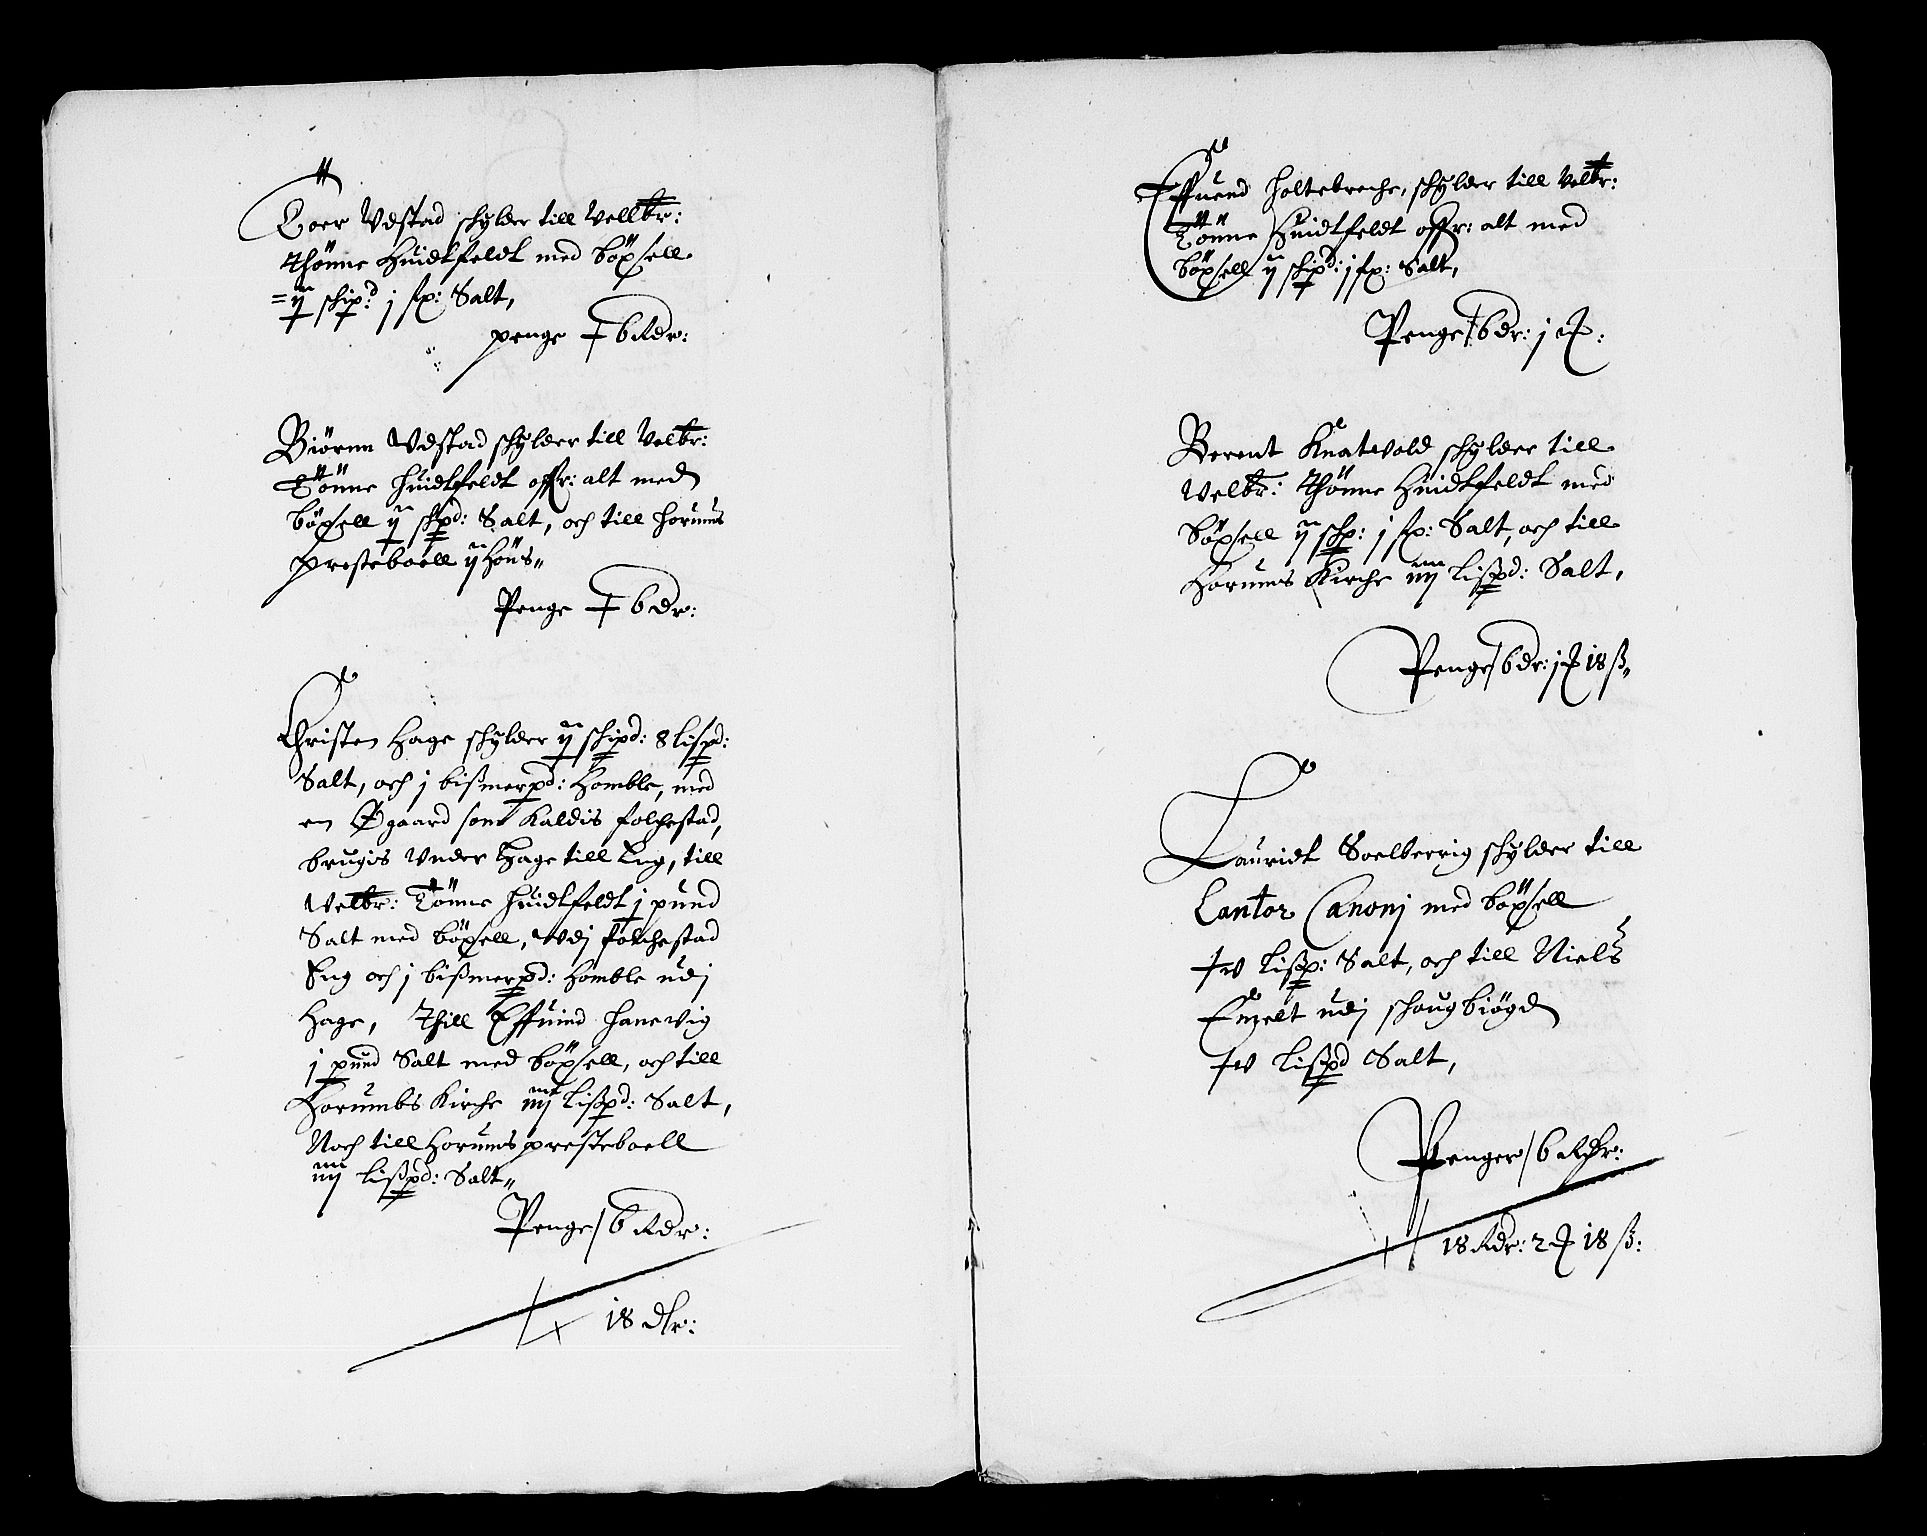 Toer Udstad schylder till Vellbr:
Thönne Huidtfeldt med böxsell
= ij schipd: j sp: Salt,
penge 6 Rdr:
Biörnn Udstad schylder till Velbr:
Tönne Huidtfeldt offr: alt med
böxsell ij schpd: Salt, och till Horums
presteboell ij Höns
Penge 6 dr:
Christen Hage schylder ij schipd: 8 lispd:
Salt, och j bißmerpd: Homble, med
en Ødgaard som kaldis folchestad,
brugis under Hage till Eng, till
Velbr: Tönne Huidtfeldt j pund
Salt med böxsell, udj folchestad
Eng och j bißmerpd: Homble udj
Hage, Thill Effuind Hanevig
j pund Salt med böxsell, och till
Horumbs Kirche iiij Lißpd: Salt,
Noch till Horums presteboell
iiij Lißpd: Salt
Penge 6 Rdr:
18 dlr:
Effuend Holtebreche, schylder till Velbr:
Tönne Huidtfeldt offr: alt med
böxsell ij schipd: j sp: Salt,
Penge 6 dr: j :
Berent Knatvold schylder till
Velbr: Thönne Huidtfeldt med
böxsell ij schp: j sp: Salt, och till
Horums Kirche iiij Lißpd: Salt,
Penge 6 dr: j 18 ß
Lauridt Soelberrig schylder till
Cantor Canonj med böxsell
tv Lißp: Salt, och till Niels
Enzelt udj schougbiögd
tv Lißpd Salt,
Penger 6 Rdr:
18 Rdr: 2 18 ß: